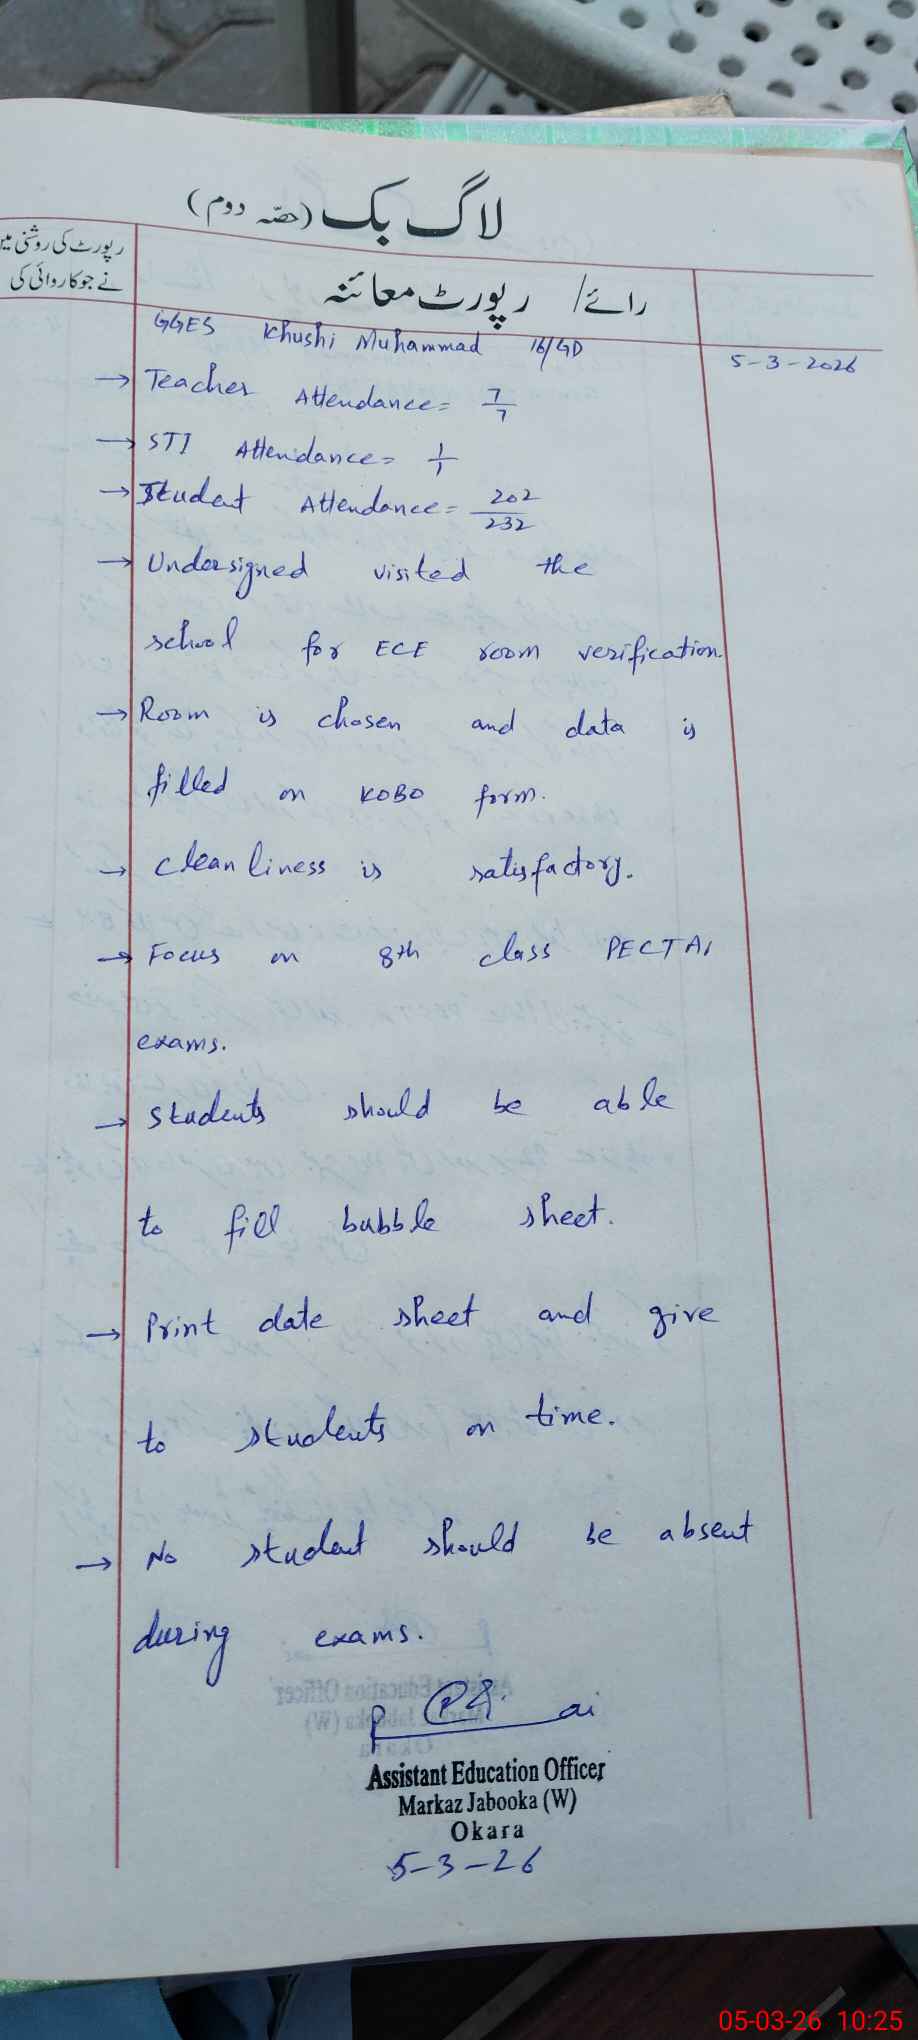 لاگ بک (حصّہ دوم)
رپورٹ کی روشنی میں
نے جو کاروائی کی
رائے/ رپورٹ معائنہ
GGES Khushi Muhammad 16/GD
5-3-2026
→ Teacher Attendance = 7/7
→ STI Attendance = 1/1
→ Student Attendance = 202/232
→ Undersigned visited the
school for ECE room verification.
→ Room is chosen and data is
filled on KOBO form.
→ cleanliness is satisfactory.
→ Focus on 8th class PECTAA
exams.
→ Students should be able
to fill bubble sheet.
→ Print date sheet and give
to students on time.
→ No student should be absent
during exams.
Assistant Education Officer
Markaz Jabooka (W)
Okara
5-3-26
05-03-26 10:25